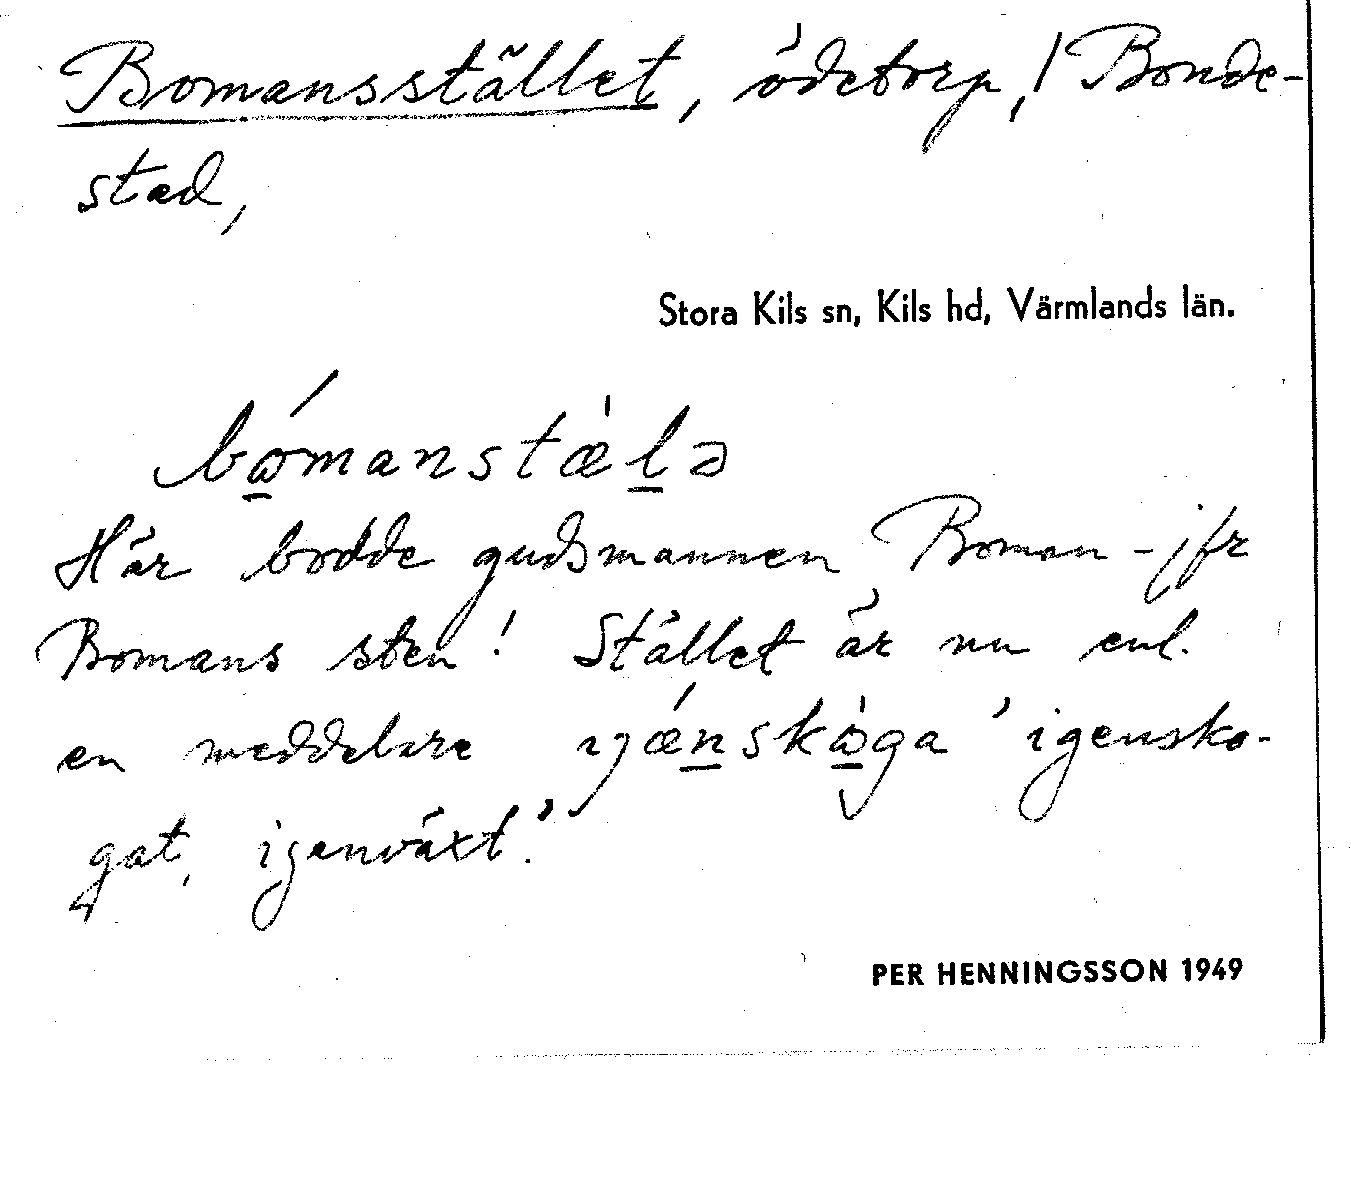 Bomansstället, ödetorp, / Bonde-
stad,
Stora Kils sn, Kils hd, Värmlands län.
bɷ́manstæ̀lə
Här bodde gudsmannen Boman - jfr
Bomans sten! Stället är nu enl.
en meddelare ɪjǽnskɷ̀ga 'igensko-
gat, igenväxt.'
PER HENNINGSSON 1949